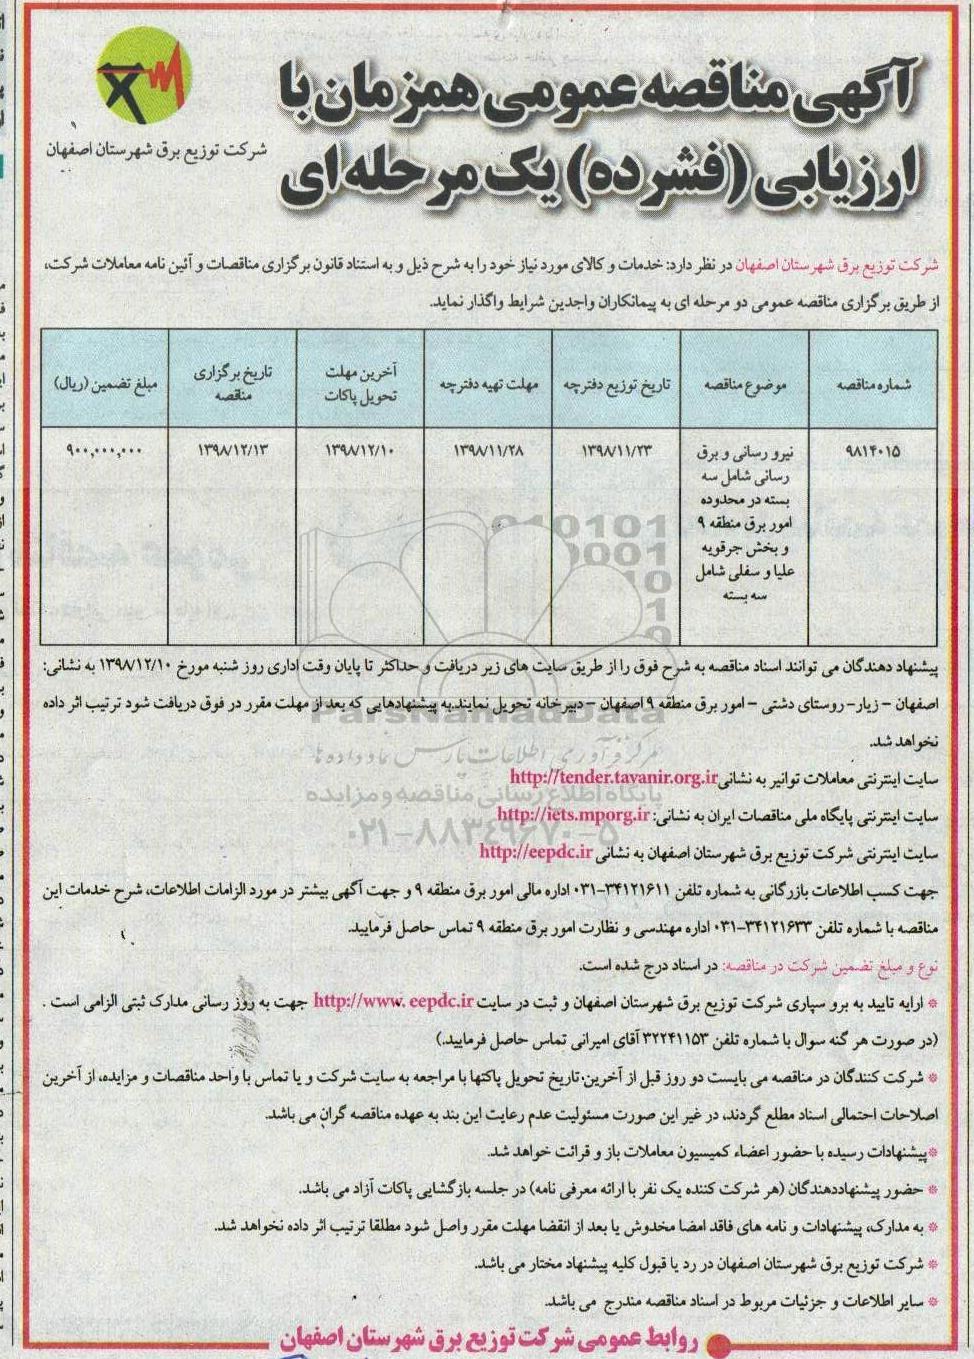 آگهی مناقصه عمومی همزمان با
ارزیابی (فشرده) یک مرحله ای
شرکت توزیع برق شهرستان اصفهان
شرکت توزیع برق شهرستان اصفهان در نظر دارد: خدمات و کالای مورد نیاز خود را به شرح ذیل و به استناد قانون برگزاری مناقصات و آئین نامه معاملات شرکت،
از طریق برگزاری مناقصه عمومی دو مرحله ای به پیمانکاران واجدین شرایط واگذار نماید.
شماره مناقصه
موضوع مناقصه
تاریخ توزیع دفترچه
مهلت تهیه دفترچه
آخرین مهلت
تحویل پاکات
تاریخ برگزاری
مناقصه
مبلغ تضمین (ریال)
۹۸۱۴۰۱۵
نیرو رسانی و برق
رسانی شامل سه
بسته در محدوده
امور برق منطقه ۹
و بخش جرقویه
علیا و سفلی شامل
سه بسته
۱۳۹۸/۱۱/۲۳
۱۳۹۸/۱۱/۲۸
۱۳۹۸/۱۲/۱۰
۱۳۹۸/۱۲/۱۳
۹۰۰,۰۰۰,۰۰۰
پیشنهاد دهندگان می توانند اسناد مناقصه به شرح فوق را از طریق سایت های زیر دریافت و حداکثر تا پایان وقت اداری روز شنبه مورخ ۱۳۹۸/۱۲/۱۰ به نشانی:
اصفهان – زیار- روستای دشتی – امور برق منطقه ۹ اصفهان – دبیرخانه تحویل نمایند.به پیشنهادهایی که بعد از مهلت مقرر در فوق دریافت شود ترتیب اثر داده
نخواهد شد.
سایت اینترنتی معاملات توانیر به نشانی http://tender.tavanir.org.ir
سایت اینترنتی پایگاه ملی مناقصات ایران به نشانی: http://iets.mporg.ir
سایت اینترنتی شرکت توزیع برق شهرستان اصفهان به نشانی http://eepdc.ir
جهت کسب اطلاعات بازرگانی به شماره تلفن ۳۴۱۲۱۶۱۱-۰۳۱ اداره مالی امور برق منطقه ۹ و جهت آگهی بیشتر در مورد الزامات اطلاعات، شرح خدمات این
مناقصه با شماره تلفن ۳۴۱۲۱۶۳۳-۰۳۱ اداره مهندسی و نظارت امور برق منطقه ۹ تماس حاصل فرمایید.
نوع و مبلغ تضمین شرکت در مناقصه: در اسناد درج شده است.
* ارایه تایید به برو سپاری شرکت توزیع برق شهرستان اصفهان و ثبت در سایت http://www. eepdc.ir جهت به روز رسانی مدارک ثبتی الزامی است .
(در صورت هر گنه سوال با شماره تلفن ۳۲۲۴۱۱۵۳ آقای امیرانی تماس حاصل فرمایید.)
* شرکت کنندگان در مناقصه می بایست دو روز قبل از آخرین تاریخ تحویل پاکتها با مراجعه به سایت شرکت و یا تماس با واحد مناقصات و مزایده، از آخرین
اصلاحات احتمالی اسناد مطلع گردند، در غیر این صورت مسئولیت عدم رعایت این بند به عهده مناقصه گران می باشد.
*پیشنهادات رسیده با حضور اعضاء کمیسیون معاملات باز و قرائت خواهد شد.
* حضور پیشنهاددهندگان (هر شرکت کننده یک نفر با ارائه معرفی نامه) در جلسه بازگشایی پاکات آزاد می باشد.
* به مدارک، پیشنهادات و نامه های فاقد امضا مخدوش یا بعد از انقضا مهلت مقرر واصل شود مطلقا ترتیب اثر داده نخواهد شد.
* شرکت توزیع برق شهرستان اصفهان در رد یا قبول کلیه پیشنهاد مختار می باشد.
* سایر اطلاعات و جزئیات مربوط در اسناد مناقصه مندرج می باشد.
روابط عمومی شرکت توزیع برق شهرستان اصفهان
ParsNamadData
مرکز فرآوری اطلاعات پارس نماد داده ها
پایگاه اطلاع رسانی مناقصه و مزایده
۰۲۱-۸۸۳۴۹۶۷۰-۵